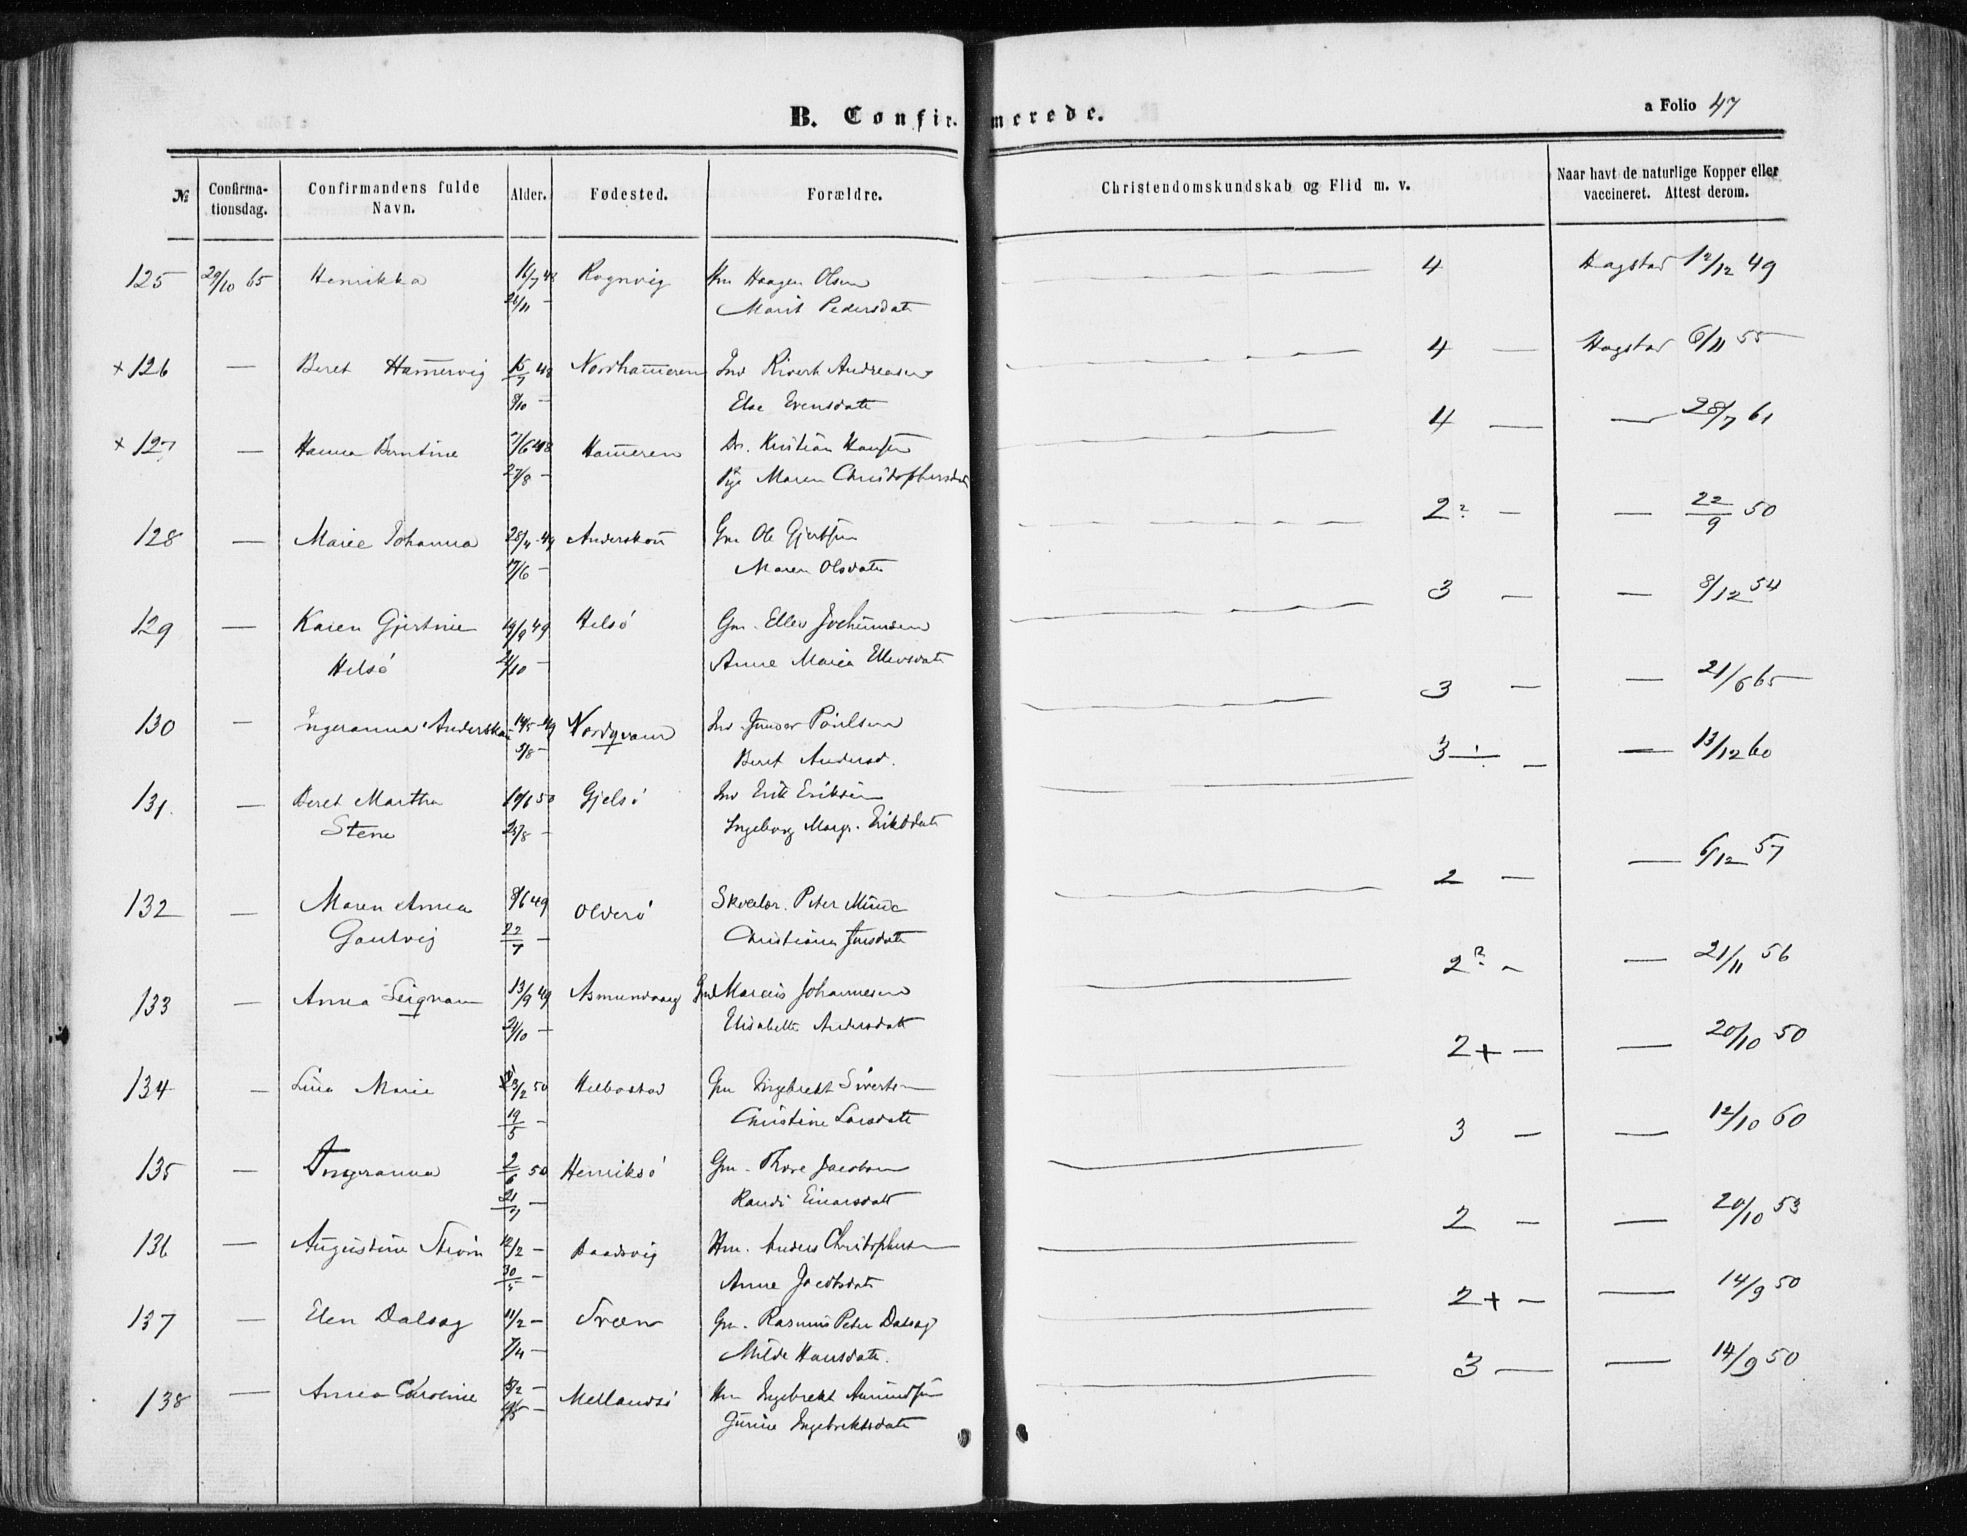 B. Confirmerede.
a Folio 47
№
Confirmationsdag.
Confirmandens fulde Navn.
Alder.
Fødested.
Forældre.
Christendomskundskab og Flid m. v.
Naar havt de naturlige Kopper eller vaccineret. Attest derom.
125 29/10 65 Henrikka 16/7 48 Rognvig Hm Haagen Olsen 4 Hagstad 12/12 49
24/11 — Marit Pedersdatr
× 126 — Beret Hamervig 15/7 48 Nordhameren Ind Sivert Andreasen 4 — Hagstad 6/11 55
9/10 — Else Evensdatr
× 127 — Hanna Berntine 7/6 48 Hameren Kristian Hansen 4 — — 28/7 61
27/8 — Pige Maren Christophersdatr
128 — Maree Johanna 28/4 49 Anderskau Gm Ole Gjertsen 2? — — 22/9 50
17/6 — Maren Olsdatr
129 — Karen Gjertine 19/9 49 Helsö Gm. Ellev Jochumsen 3 — — 8/12 54
Helsö 21/10 — Anne Marea Ellevsdatr
130 — Ingeranna Anderskau 14/5 49 Nordqvam Ind. Gunder Paulsen 3 — — 21/6 65
5/8 — Beret Andersd.
131. — Beret Martha 10/6 50 Gjelsö Ind Erik Eriksen 3 ÷ — — 13/12 60
Stene 25/8 — Ingeborg Margr. Eriksdatr
132 — Maren Anna 9/6 49 Olderö Skoelær. Peter Munc 2 — — 6/12 57
Gautvig 22/7 — Christiana Jensdatr
133 — Anna Leiqvam 13/9 49 Asmundvaag Ind Marcus Johannesen 2? — — 21/11 56
21/10 — Elisabeth Andersdatr
134 — Lina Marie 23/2 50 Helbostad Gm Ingebrekt Sivertsen 2+ — — 20/10 50
19/5 — Christine Larsdatr
135 — Ingranna 2/6 50 Henriksö Gm. Thore Jacobsen 3 — — 12/10 60
21/7 — Randi Einarsdatr
136 — Augustine Strøm 12/2 — Baadsvig Hm. Anders Christophersen 2 — — 20/10 53
30/5 — Anne Jacobsdatr
137 — Elen Dalsag 11/2 — Træn Gm. Rasmus Peter Dalsag 2+ — — 14/9 50
7/4 — Milde Hansdatr.
138 — Anna Caroline 5/2 — Mellandsö Hm Ingebrekt Amundsen 3 — — 14/9 50
19/5 — Gurine Ingebrektsdatr